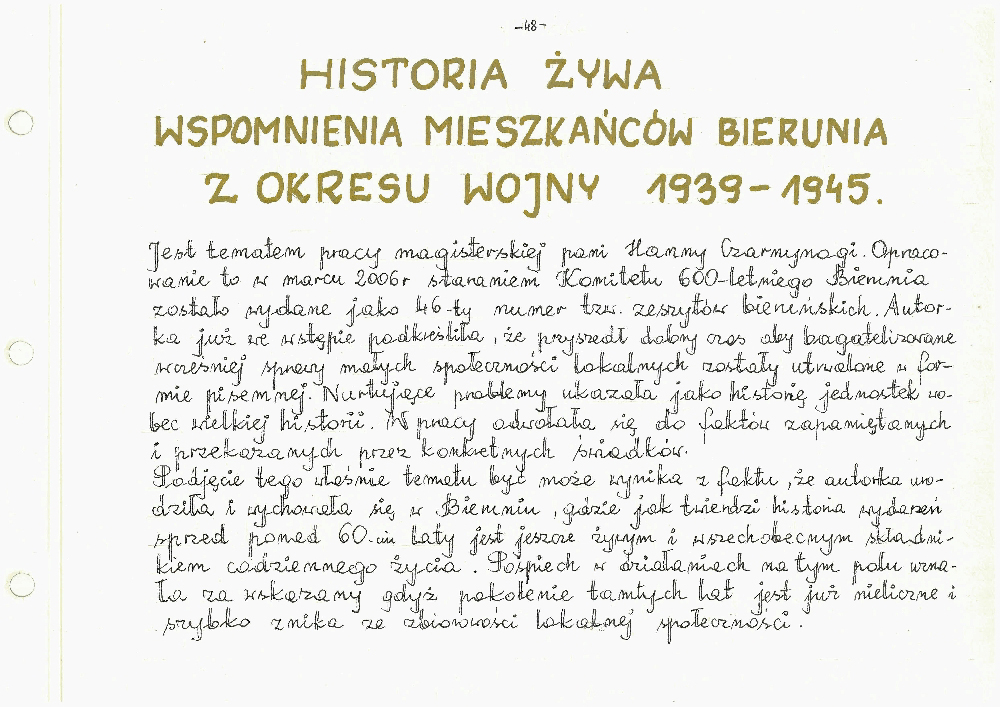 -48-
HISTORIA ŻYWA
WSPOMNIENIA MIESZKAŃCÓW BIERUNIA
Z OKRESU WOJNY 1939-1945.
Jest tematem pracy magisterskiej pani Hanny Czarnynogi. Opraco-
wanie to w marcu 2006r staraniem Komitetu 600-letniego Bierunia
zostało wydane jako 46-ty numer tzw. zeszytów bieruńskich. Autor-
ka już we wstępie podkreśliła, że przyszedł dobry czas aby bagatelizowane
wcześniej sprawy małych społeczności lokalnych zostały utrwalone w for-
mie pisemnej. Nurtujące problemy ukazała jako historię jednostek wo-
bec wielkiej historii. W pracy odwołała się do faktów zapamiętanych
i przekazanych przez konkretnych świadków.
Podjęcie tego właśnie tematu być może wynika z faktu, że autorka uro-
dziła i wychowała się w Bieruniu, gdzie jak twierdzi historia wydarzeń
sprzed ponad 60-ciu laty jest jeszcze żywym i wszechobecnym składni-
kiem codziennego życia. Pośpiech w działaniach na tym polu uzna-
ła za wskazany gdyż pokolenie tamtych lat jest już nieliczne i
szybko znika ze zbiorowości lokalnej społeczności.